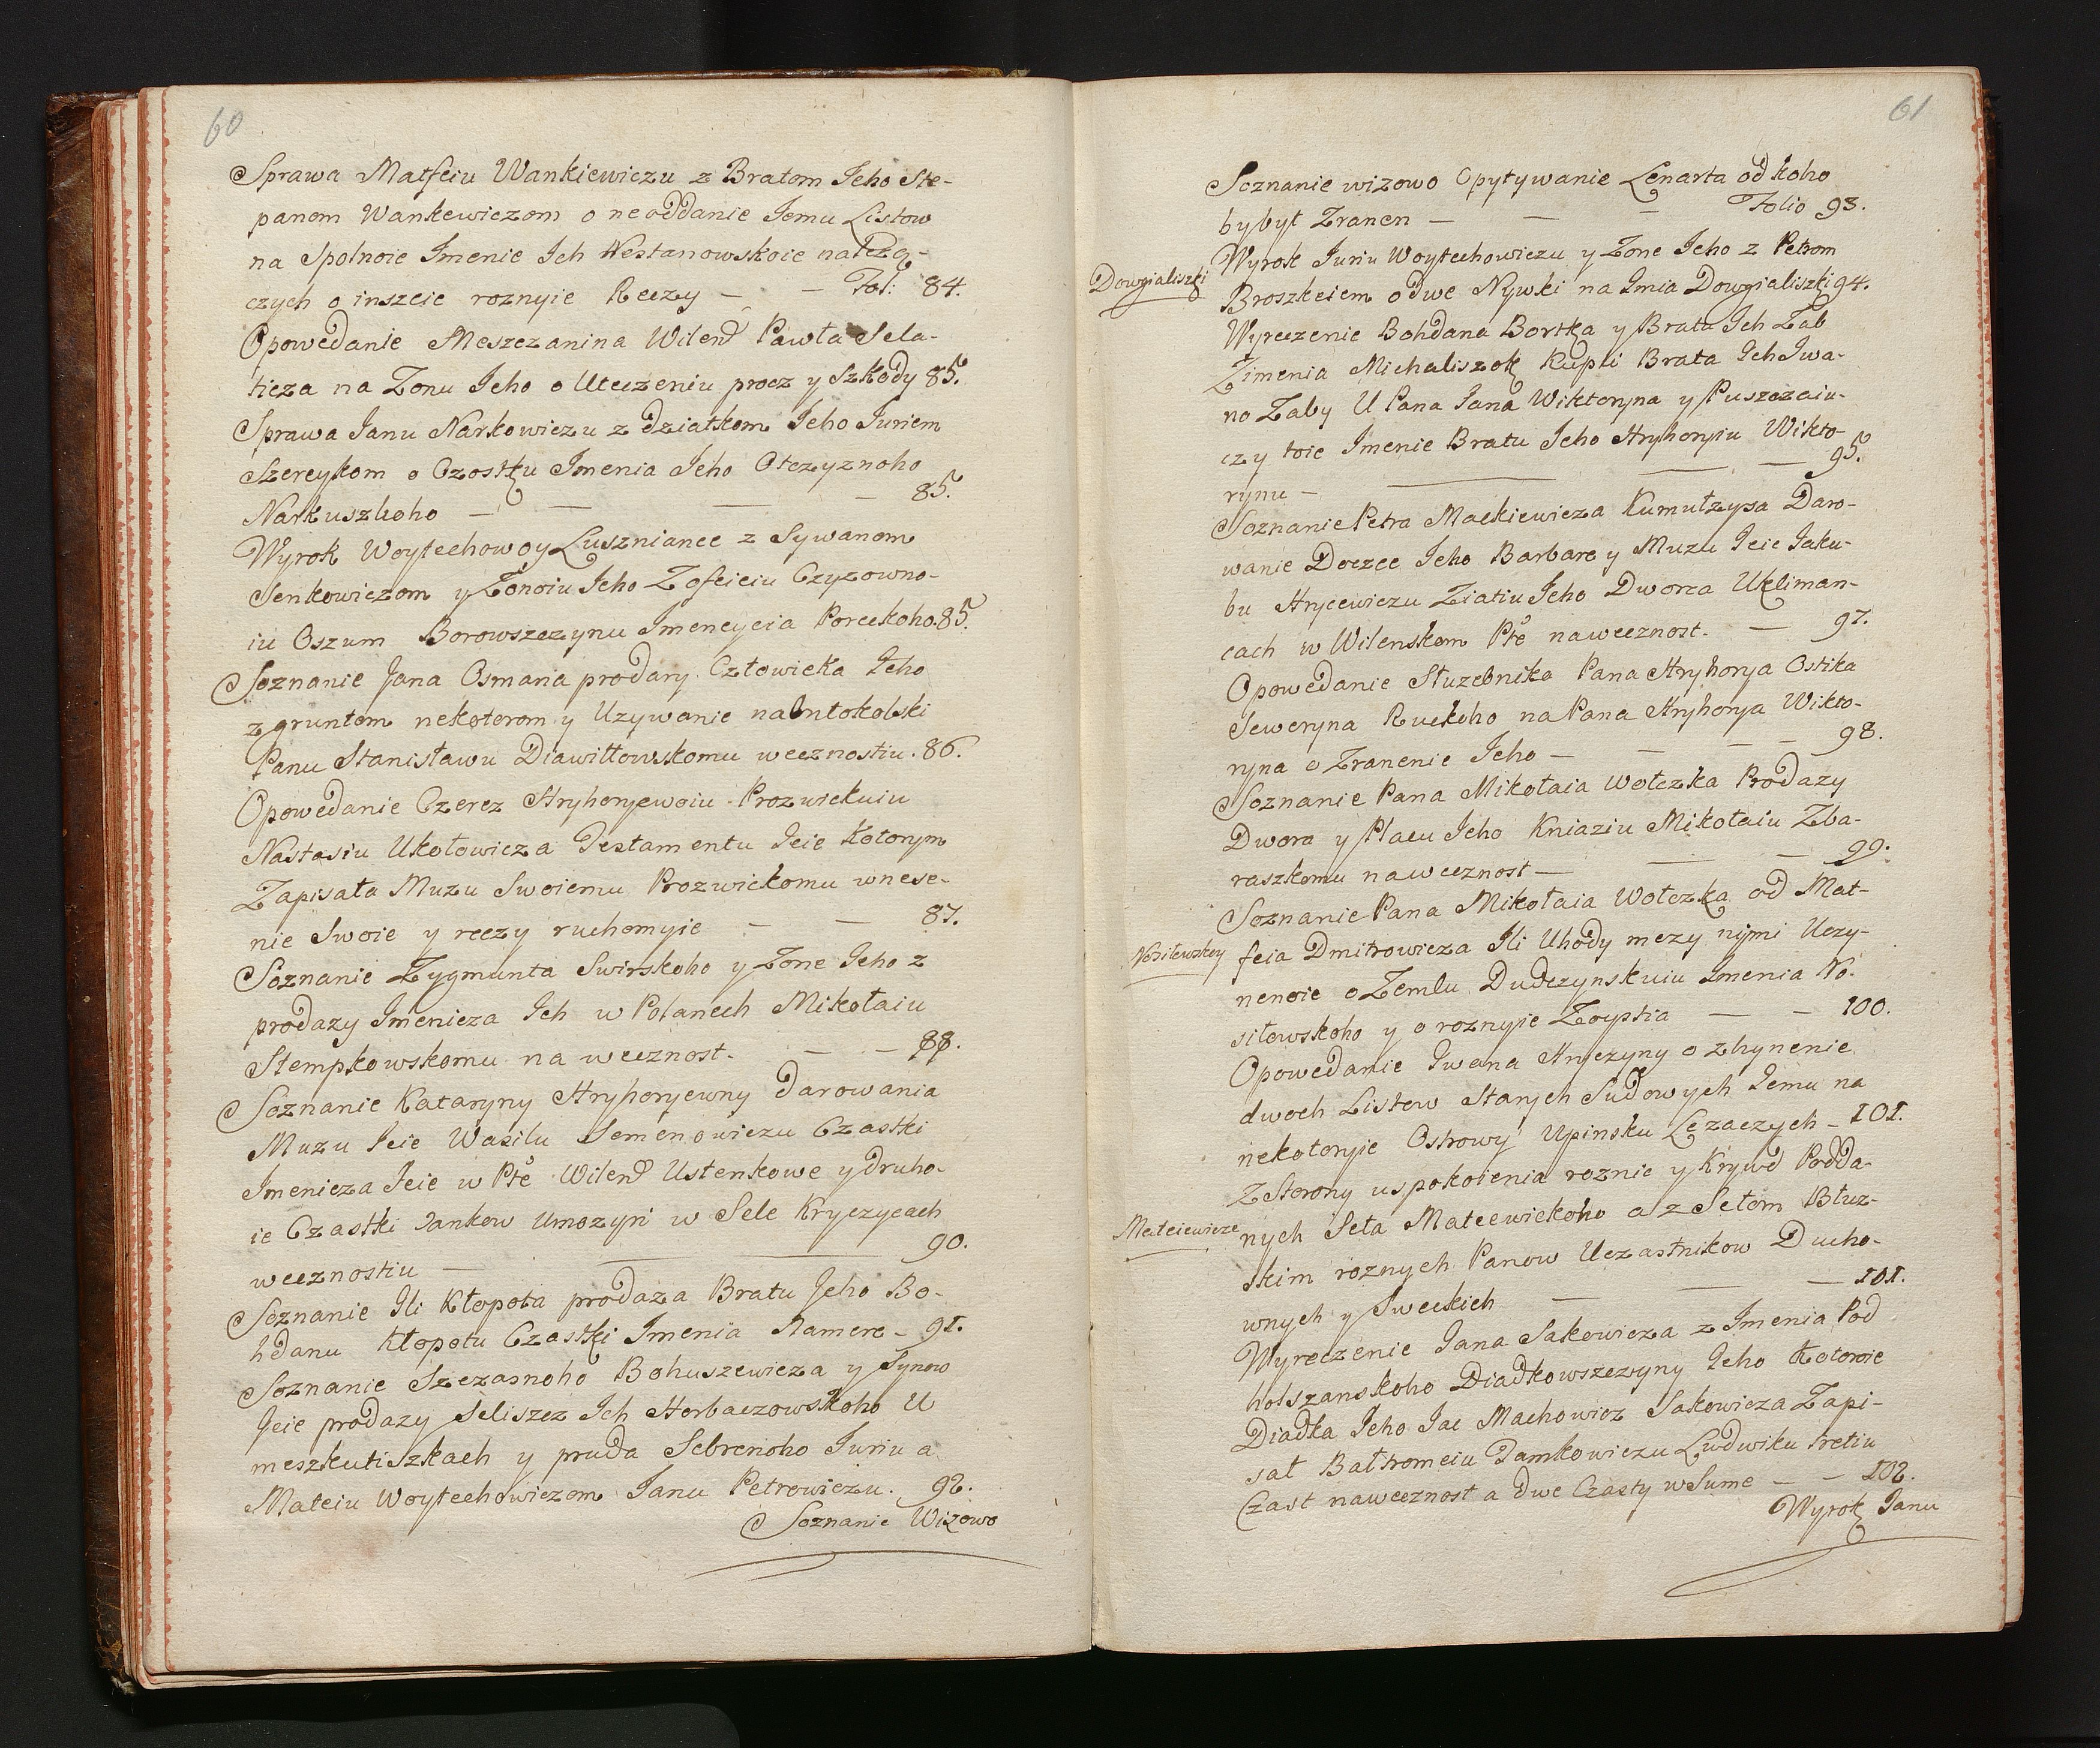 60
Sprawa Matfeiu Wankiewiczu z Bratom Jeho Ste-
panom Wankewiczom o neoddanie Jemu Listow
na Spolnoie Imenie Jch Westanowskoie nateżą-
czych o inszeie roznyie Reczy — — Fol: 84.
Opowedanie Meszczanina Wilend Pawła Sela-
ticza na Zonu Jeho o Uteczeniu procz y Szkody 85.
Sprawa Janu Narkowiczu z dziatkom Jeho Juriem
Szereykom o Czostku Imenia Jeho Otczyznoho
Narkuszkoho — — — — 85.
Wyrok Woytechowoy Luszniance z Sywanom
Senkowiczom y Zonoiu Jeho Zofeieiu Czyzowno-
iu Oszum Borowszczynu Imeneycia Poreckoho. 85.
Soznanie Jana Osmana prodazy Człowieka Jeho
z gruntom nekoterom y Uzywanie na Antokolski
Panu Stanisławu Diawiltowskomu wecznostiu. 86.
Opowedanie Czerez Hryhoryewoiu Prozwickuiu
Nastasiu Ukołowicza Testamentu Jeie Kotorym
Zapisała Muzu Swoiemu Prozwickomu wnese-
nie Swoie y reczy ruchomyie — — 87.
Soznanie Zygmunta Swirskoho y Zone Jeho z
prodazy Imenicza Jch w Polanech Mikołaiu
Stempkowskomu na wecznost. — — 88.
Soznanie Kataryny Hryhoryewny darowania
Muzu Jeie Wasilu Semenowiczu Czastki
Imenicza Jeie w Pte Wilend Ustenkowe y druho-
ie Czastki Jankow Umozyri w Sele Kryczycach
wecznostiu — — — 90.
Soznanie Jli Kłopota prodaza Bratu Jeho Bo-
hdanu Kłopotu Czastki Imenia Namere — 91.
Soznanie Szczasnoho Bohuszewicza y Synow
Jeie prodazy Seliszcz Jch Horbaczowskoho U
meszkutiszkach y pruda Sebrenoho Juriu a
Mateiu Woytechowiczom Janu Petrowiczu. 92.
Soznanie Wizowo
61
Soznanie wizowo Opytywanie Lenarta od koho
bybył Zranen — — — Folio 93.
Dowgialiszki
Wyrok Juriu Woytechowiczu y Zone Jeho z Petrom
Broszkeiem o dwe Nywki na Imia Dowgialiszki 94.
Wyreczenie Bohdana Bortka y Brata Jch Zab
Zimenia Michaliszok Kupli Brata Jch Jwa-
no Zaby U Pana Jana Wiktoryna y Puszczaiu-
czy toie Imenie Bratu Jeho Hryhoryiu Wikto-
rynu — — — 95.
Soznanie Petra Mackiewicza Kumutzysa Daro-
wanie Doczce Jeho Barbare y Muzu Jeie Jaku-
bu Hrycewiczu Ziatiu Jeho Dworca Ukliman-
cach w Wilenskom Pte nawecznost. — 97.
Opowedanie Słuzebnika Pana Hryhorya Ostika
Seweryna Ruckoho na Pana Hryhorya Wikto-
ryna o Zranenie Jeho — — — — 98.
Soznanie Pana Mikołaia Wołczka Prodazy
Dwora y Placu Jeho Kniaziu Mikołaiu Zba-
raszkomu nawecznost — — — 99.
Soznanie Pana Mikołaia Wołczka od Mat-
Nosiłewskoy
feia Dmitrowicza Jli Uhody mezy nymi Uczy-
nenoie o Zemlu Dudczynskuiu Imenia No-
siłowskoho y o roznyie Zoystia — — 100.
Opowedanie Jwana Hryczyny o zhynenie
dwoch Listow Starych Sudowych Jemu na
nekotoryie Ostrowy Upinsku Lezaczych — 101.
Z Storony uspokoienia roznie y Krywd Podda-
Mateiewicze
nych Seła Mateewickoho a z Sełom Błuz-
skim roznych Panow Uczastnikow Ducho-
wnych y Sweckich — — — 101.
Wyreczenie Jana Sakowicza z Imenia Pod
holszanskoho Diadkowszczyny Jeho Kotoroie
Diadka Jeho Jac Machowicz Sakowicza Zapi-
sał Bałtromeiu Tamkowiczu Ludwiku tretiu
Czast nawecznost a dwe Czasty w Sume — — 102.
Wyrok Janu